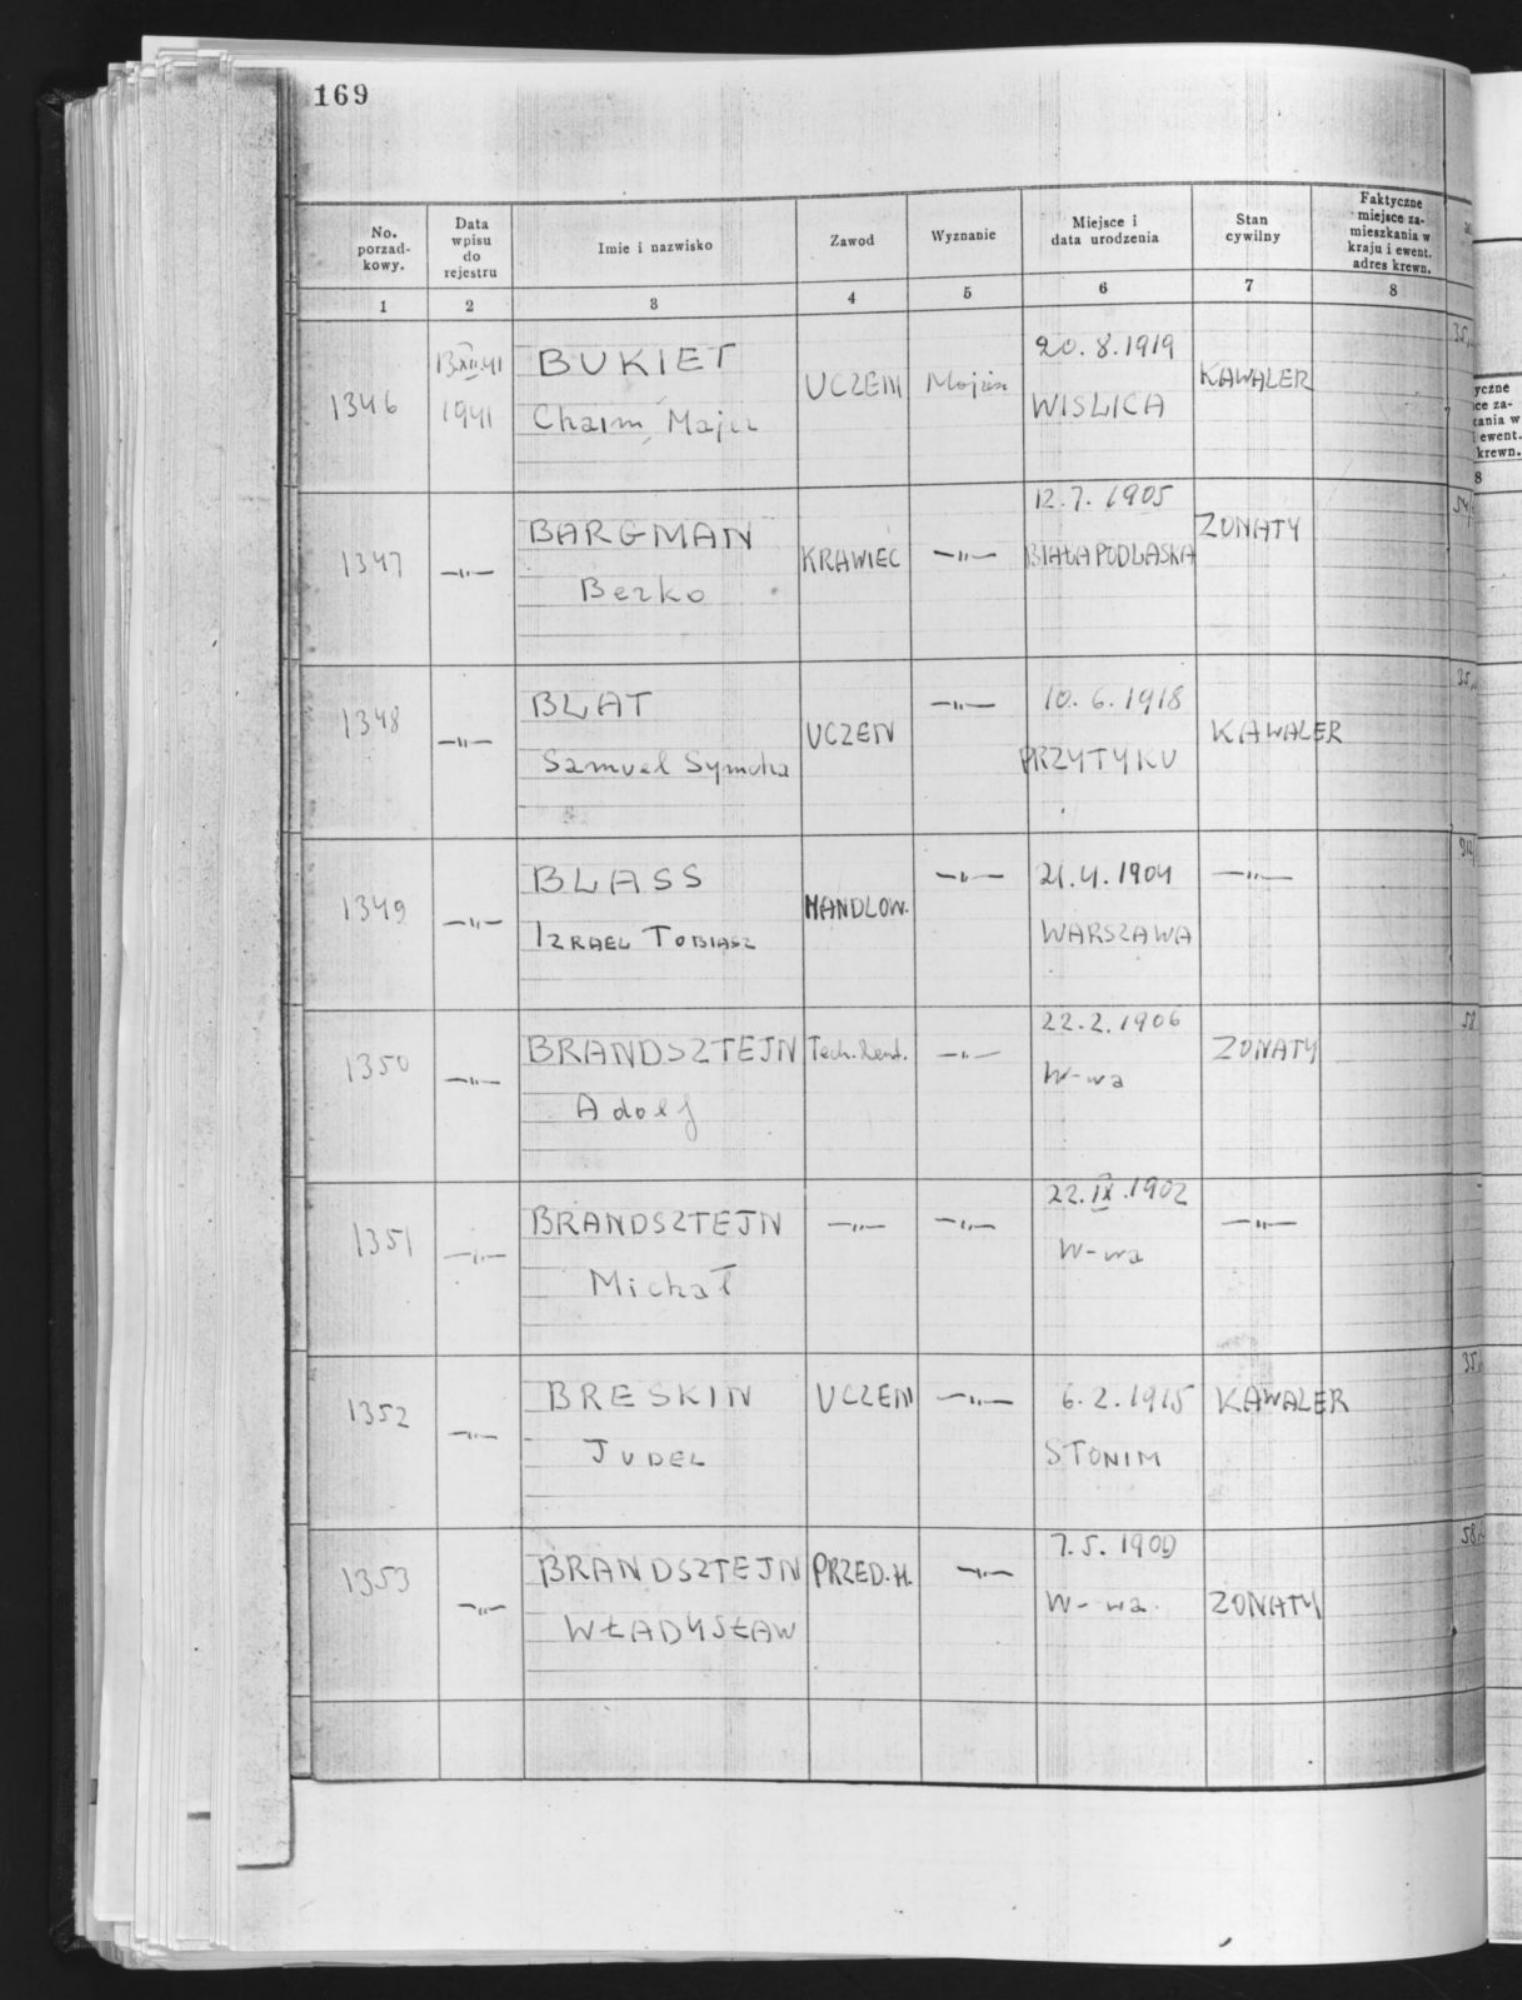 169
No. porzad-kowy.
Data wpisu do rejestru
Imie i nazwisko
Zawod
Wyznanie
Miejsce i data urodzenia
Stan cywilny
Faktyczne miejsce za-mieszkania w kraju i ewent. adres krewn.
1 2 3 4 5 6 7 8
1346
13.XII.41
1941
BUKIET
Chaim, Majer
UCZEŃ
Mojżesz
20.8.1919
WISLICA
KAWALER
1347
—„—
BARGMAN
Berko
KRAWIEC
—„—
12.7.1905
BIAŁA PODLASKA
ZONATY
1348
—„—
BLAT
Samuel Symcha
UCZEN
—„—
10.6.1918
PRZYTYKU
KAWALER
1349
—„—
BLASS
IZRAEL TOBIASZ
HANDLOW.
—„—
21.4.1904
WARSZAWA
—„—
1350
—„—
BRANDSZTEJN
Adolf
Tech. Dent.
—„—
22.2.1906
W-wa
ZONATY
1351
—„—
BRANDSZTEJN
Michał
—„—
—„—
22.IX.1902
W-wa
—„—
1352
—„—
BRESKIN
JUDEL
UCZEŃ
—„—
6.2.1915
STONIM
KAWALER
1353
—„—
BRANDSZTEJN
WŁADYSŁAW
PRZED.H.
—„—
7.5.1900
W-wa.
ZONATY
yczne
ce za-
kania w
i ewent.
krewn.
8